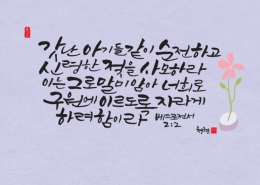 갓난 아기들 같이 순전하고
신령한 젖을 사모하라
이는 그로 말미암아 너희로
구원에 이르도록 자라게
하려 함이라
베드로전서
2:2